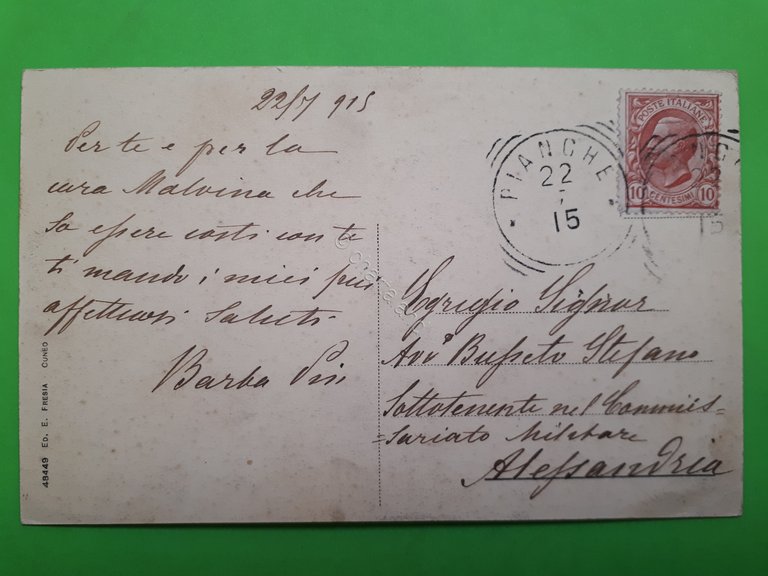 22/7 915
Per te e per la
cara Malvina che
so essere costì con te
ti mando i miei più
affettuosi saluti.
Barba Pin
POSTE ITALIANE
10 CENTESIMI 10
PIANCHE
22
7
15
Egregio Signor
Avv° Busseto Stefano
Sottotenente nel Commis-
=sariato Militare
Alessandria
48449 ED. E. FRESIA - CUNEO